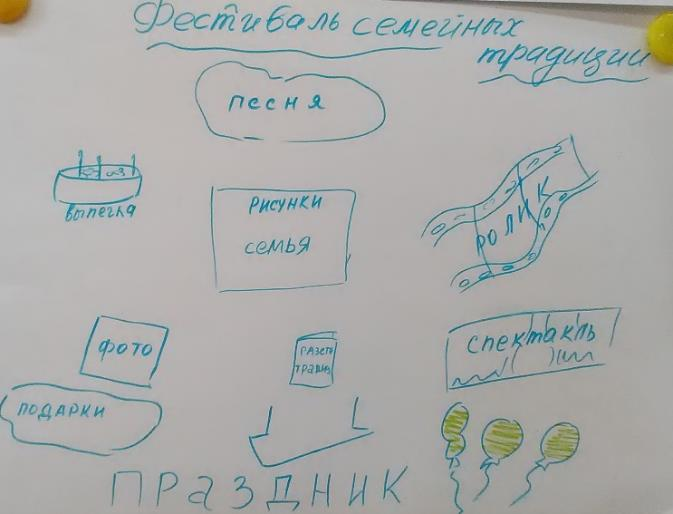 Фестиваль семейных
традиции
песня
выпечка
Рисунки
семья
РОЛИК
ФОТО
ПОДАРКИ
СПЕКТАКЛЬ
ПРАЗДНИК